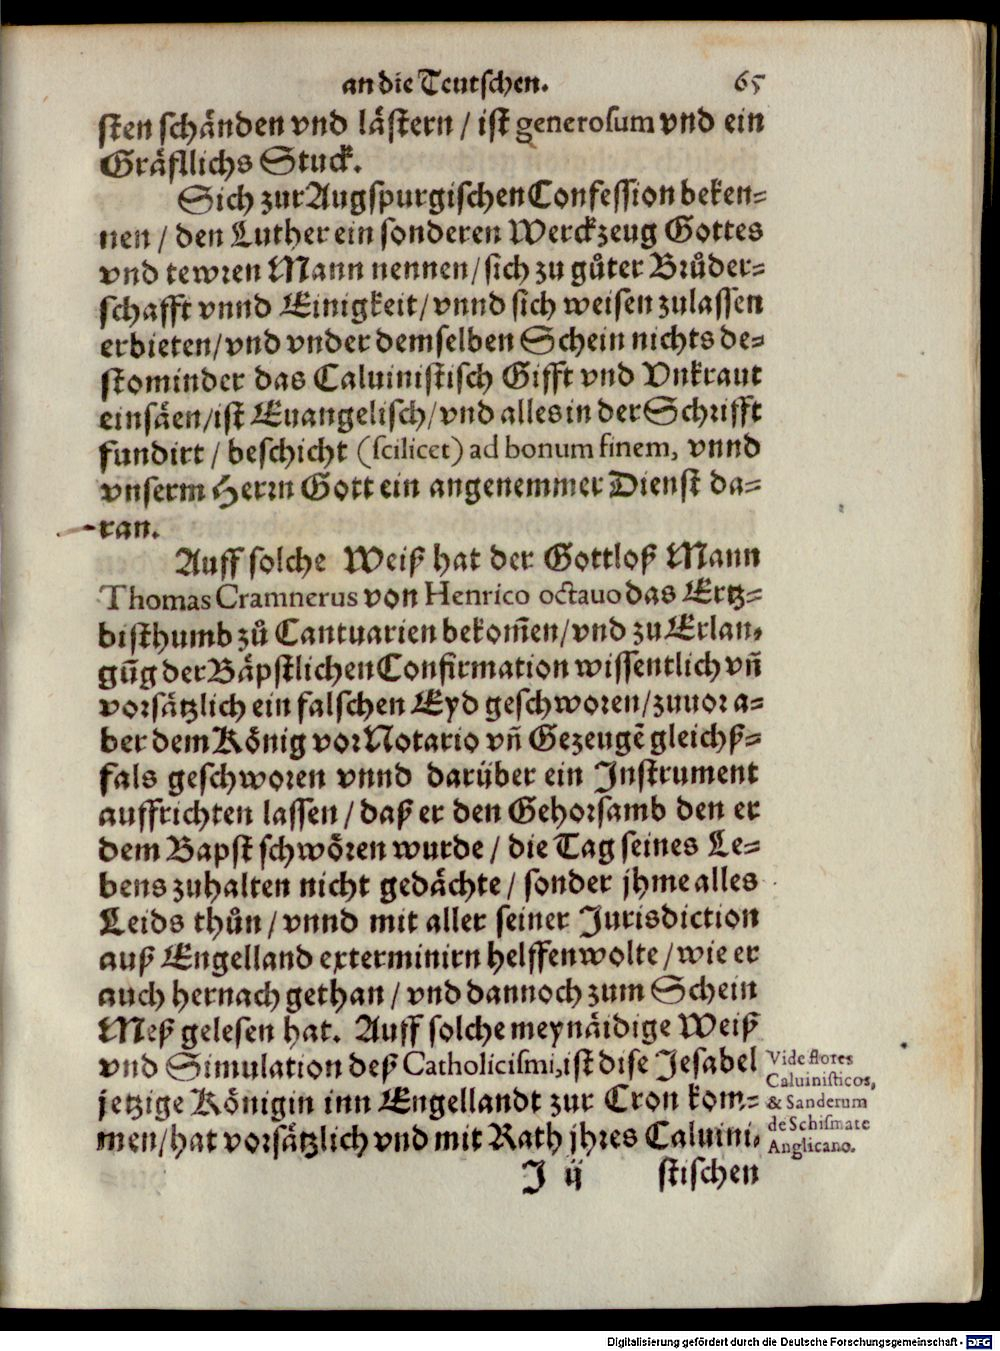 an die Teutschen. 65
sten schänden vnd lästern / ist generosum vnd ein
Gräfllichs Stuck.
Sich zur Augspurgischen Confession beken=
nen / den Luther ein sonderen Werckzeug Gottes
vnd tewren Mann nennen / sich zu gůter Brůder=
schafft vnnd Einigkeit / vnnd sich weisen zulassen
erbieten / vnd vnder demselben Schein nichts de=
stominder das Caluinistisch Gifft vnd Vnkraut
einsäen / ist Euangelisch / vnd alles in der Schrifft
fundirt / beschicht (scilicet) ad bonum finem, vnnd
vnserm Herrn Gott ein angenemmer Dienst da=
ran.
Auff solche Weiß hat der Gottloß Mann
Thomas Cramnerus von Henrico octauo das Ertz=
bisthumb zů Cantuarien bekom̃en / vnd zu Erlan=
gũg der Bäpstlichen Confirmation wissentlich vñ
vorsätzlich ein falschen Eyd geschworen / zuuor a=
ber dem König vor Notario vñ Gezeugẽ gleichß=
fals geschworen vnnd darüber ein Instrument
auffrichten lassen / daß er den Gehorsamb den er
dem Bapst schwören wurde / die Tag seines Le=
bens zuhalten nicht gedächte / sonder jhme alles
Leids thůn / vnnd mit aller seiner Jurisdiction
auß Engelland exterminirn helffen wolte / wie er
auch hernach gethan / vnd dannoch zum Schein
Meß gelesen hat. Auff solche meynäidige Weiß
vnd Simulation deß Catholicismi, ist dise Jesabel
jetzige Königin inn Engellandt zur Cron kom=
men / hat vorsätzlich vnd mit Rath jhres Caluini=
Vide flores
Caluinisticos,
& Sanderum
de Schismate
Anglicano.
J ij stischen
Digitalisierung gefördert durch die Deutsche Forschungsgemeinschaft - DFG